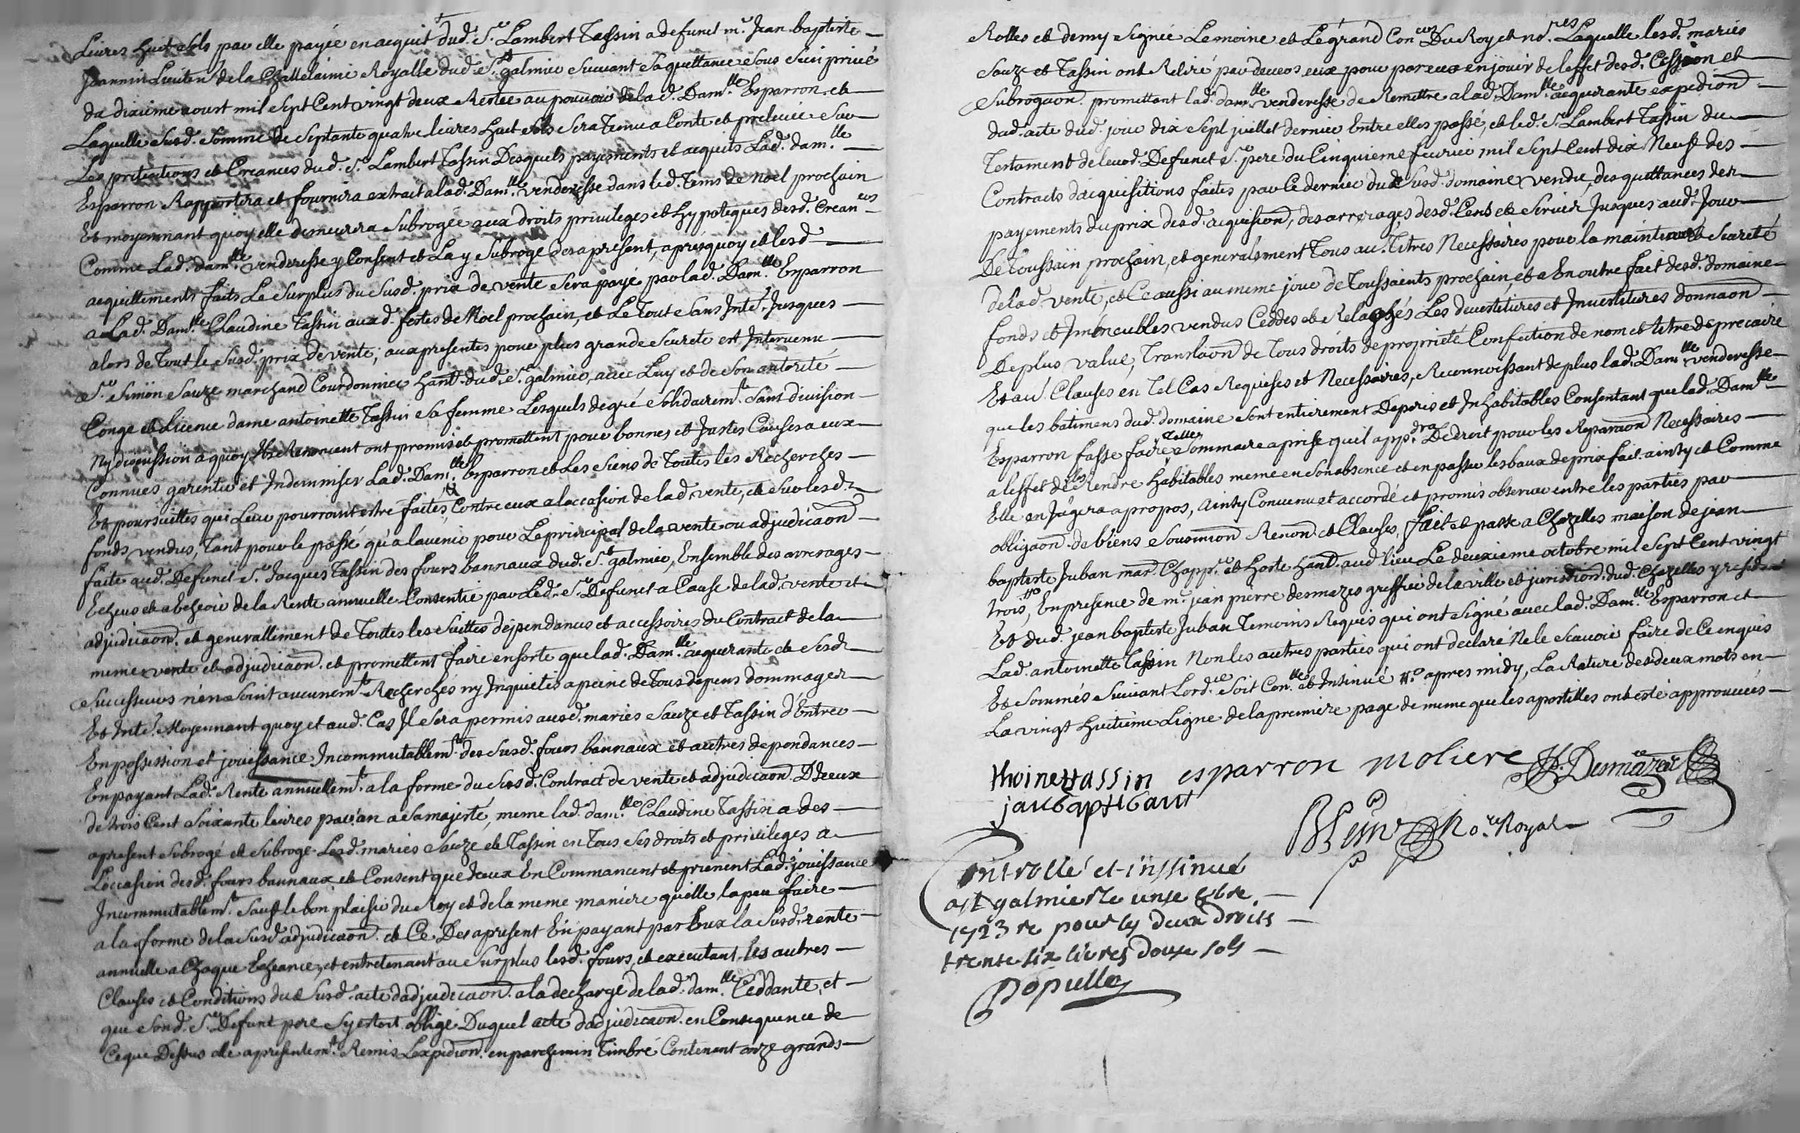 Livres huit sols par elle payée en acquit dud. Sr. Lambert Tassin a defunt mr. Jean baptiste
Jeannin Lieuten.t de la Chattelainie Royalle dud. St. galmier suivant sa quittance sous sein privé
du dixième aoust mil sept Cent vingt deux Restée au pouvoir de lad. Dam.lle Esparron, et
Laquelle susd. somme de septante quatre livres huit sols sera tenu a Conte et prelevée sur
Les pretentions et Creances dud. Sr. Lambert Tassin Desquels payements et acquits Lad. dam.lle
Esparron Rapportera et fournira extrait a lad. Dam.lle venderesse dans led. tems de noel prochain
Et moyennant quoy elle demeurera subrogée aux droits privileges et hypoteques desd. Crean.ers
Comme Lad. dam.lle venderesse y Consent et La y subroge des a present, apres quoy et lesd.
acquittements faits Le surplus du susd. prix de vente sera payé par lad. Dam.lle Esparron
a Lad. Dam.lle Claudine Tassin aux d. festes de Noel prochain, et Le Tout sans Inte.t Jusques
alors de Tout le susd. prix de vente, aux presentes pour plus grande seureté est Intervenu
Sr. Simon Sauze marchand Courdonnier hant. dud. St. galmier, avec Luy et de son autorité
Congé et Licence dame antoinette Tassin sa femme Lesquels de gré solidairem.t sans division
Ny discussion a quoy Ils Renoncent ont promis et promettent pour bonnes et Justes Causes a eux
Connues garentir et Indemniser Lad. Dam.lle Esparron et Les siens de Toutes les Recherches
Et poursuittes qui Leur pourroint estre faites Contre eux a loccasion de lad. vente, et sur lesd.
fonds vendus, Tant pour le passé qu'a lavenir pour Le principal de la vente ou adjudicaon
faite aud. Defunct Sr. Jacques Tassin des fours bannaux dud. St. galmier, Ensemble des arrerages
Echeus et a Echeoir de la Rente annuelle Consentie par Led. Sr. Defunct a Cause de lad. vente et
adjudicaon. et generallement de Toutes les suittes dependances et accessoires du Contract de la
meme vente et adjudicaon. et promettent faire ensorte que lad. Dam.lle acquerante et sesd.
successeurs n'en soint aucunem.t Recherchés ny Inquietés a peine de Tous depens dommages
Et Inte.t Moyennant quoy et aud. Cas Il sera permis ausd. mariés Sauze et Tassin d'Entrer
En possession et jouissance Incommutablem.t des susd. fours bannaux et autres dependances
En payant Lad. Rente annuellem.t a la forme du susd. Contract de vente et adjudicaon. D'Iceux
de trois Cent soixante livres par an a sa majesté, meme lad. dam.lle Claudine Tassin a des
apresent subrogé et subroge Lesd. mariés Sauze et Tassin en Tous ses droits et privileges a
L'occasion desd. fours bannaux et Consent que d'eux En Commancent et prenent Lad. jouissance
Incommutablem.t sauf le bon plaisir du Roy et de la meme maniere qu'elle la peu faire
a la forme de la susd. adjudicaon. et Ce Des apresent En payant par Eux la susd. rente
annuelle a Chaque Echeance, et entretenant au surplus lesd. fours, et executant les autres
Clauses et Conditions du susd. acte d'adjudicaon. a la decharge de lad. dam.lle Ceddante, et
que sond. Sr. Defunt pere sy estoit obligé Duquel acte d'adjudicaon. en Consequence de
Ce que Dessus elle a presentem.t Remis L'expedion. en parchemin timbré Contenant onze grands
Rolles et demy signée Lemoine et Legrand Con.ers Du Roy et no.res Laquelle lesd. mariés
Sauze et Tassin ont Retiré par devers eux pour par eux en jouir de l'effet desd. Cession et
Subrogaon. promettant lad. dam.lle venderesse de Remettre a lad. Dam.lle acquerante expedion.
dud. acte dud. jour dix sept juillet dernier Entre elles passé, et led. Sr. Lambert Tassin du
Testament de leurd. Defunct Sr. pere du Cinquieme fevrier mil sept Cent dix Neuf des
Contracts d'acquisitions faites par Ce dernier du susd. domaine vendu, des quittances des
payements du prix desd. acquision., des arrerages desd. Cens et servis Jusques aud. Jour
De toussaint prochain, et generalement Tous au.t Titres Necessaires pour la maintenue et seureté
de lad. vente, et Ce aussi au meme jour de Toussaints prochain et a En outre fait desd. domaine
fonds et Immeubles vendus Ceddés et Relaschés Les devestitures et Investitures donnaon
De plus value, Translaon de Tous droits de proprieté Confection de nom et titre de precaire
Et au.t Clauses en Tel Cas Requises et Necessaires, Reconnoissant de plus lad. Dam.lle venderesse
que les batimens dud. domaine sont entierement Deperis et Inhabitables Consentant que lad. Dam.lle
Esparron fasse faire Telle sommaire aprise quil app.dra De droit pour les Reparaon Necessaires
a l'effet de les Rendre habitables meme en son absence et en passer les baux de prix fait ainsy et Comme
Elle en Jugera a propos, ainsy Convenu et accordé et promis observer entre les parties par
obligaon. de biens sousmion. Renon. et Clauses, fait et passé a Chazelles maison de jean
baptiste Juban mar. Chapp.r et hoste hant. aud. lieu Le deuxieme octobre mil sept Cent vingt
trois, En presence de mr. jean pierre desmazes greffier de la ville et jurisdion. dud. Chazelles y residant
Et dud. jean baptiste Juban Temoins Requis qui ont signé avec lad. Dam.lle Esparron et
Lad. antoinette Tassin Non les autres parties qui ont declaré Ne le scavoir faire de Ce enquis
Et sommés suivant Lord.ce Soit Con.llé et Insinué apres midy, La Rature des deux mots en
La vingt huitieme Ligne de la premiere page de meme que les apostilles ont esté approuvées
thoinettassin esparron moliere JP. Desmazes
jan baptist
No.re Royal
Controllé et inssinué
a St galmier le unse 8bre
1723 re pour les deux droits
trente six livres douse sols
Populle